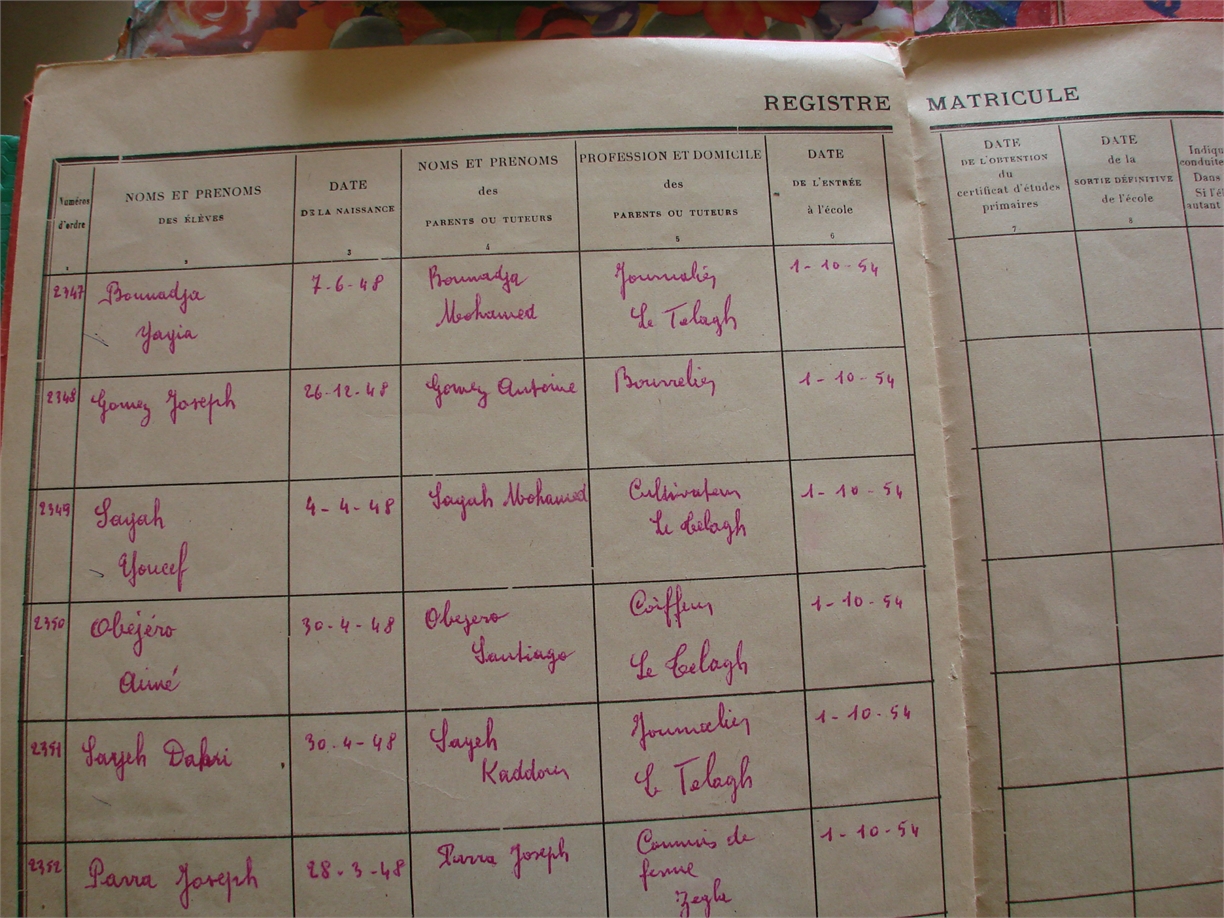 REGISTRE MATRICULE
Numéros d'ordre
1
NOMS ET PRENOMS
DES ÉLÈVES
2
DATE
DE LA NAISSANCE
3
NOMS ET PRENOMS
des
PARENTS OU TUTEURS
4
PROFESSION ET DOMICILE
des
PARENTS OU TUTEURS
5
DATE
DE L'ENTRÉE
à l'école
6
DATE
DE L'OBTENTION
du
certificat d'études
primaires
7
DATE
de la
SORTIE DÉFINITIVE
de l'école
8
Indiqu
conduite
Dans
Si l'él
autant
2347 Boumadja 7-6-48 Boumadja Journalier 1-10-54
Yayia Mohamed Le Telagh
2348 Gomez Joseph 26-12-48 Gomez Antoine Bourrelier 1-10-54
2349 Sayah 4-4-48 Sayah Mohamed Cultivateur 1-10-54
Youcef Le Télagh
2350 Obéjéro 30-4-48 Obejero Coiffeur 1-10-54
Aimé Santiago Le Télagh
2351 Sayeh Dahri 30-4-48 Sayeh Journalier 1-10-54
Kaddour Le Telagh
2352 Parra Joseph 28-3-48 Parra Joseph Commis de 1-10-54
ferme
Zegla